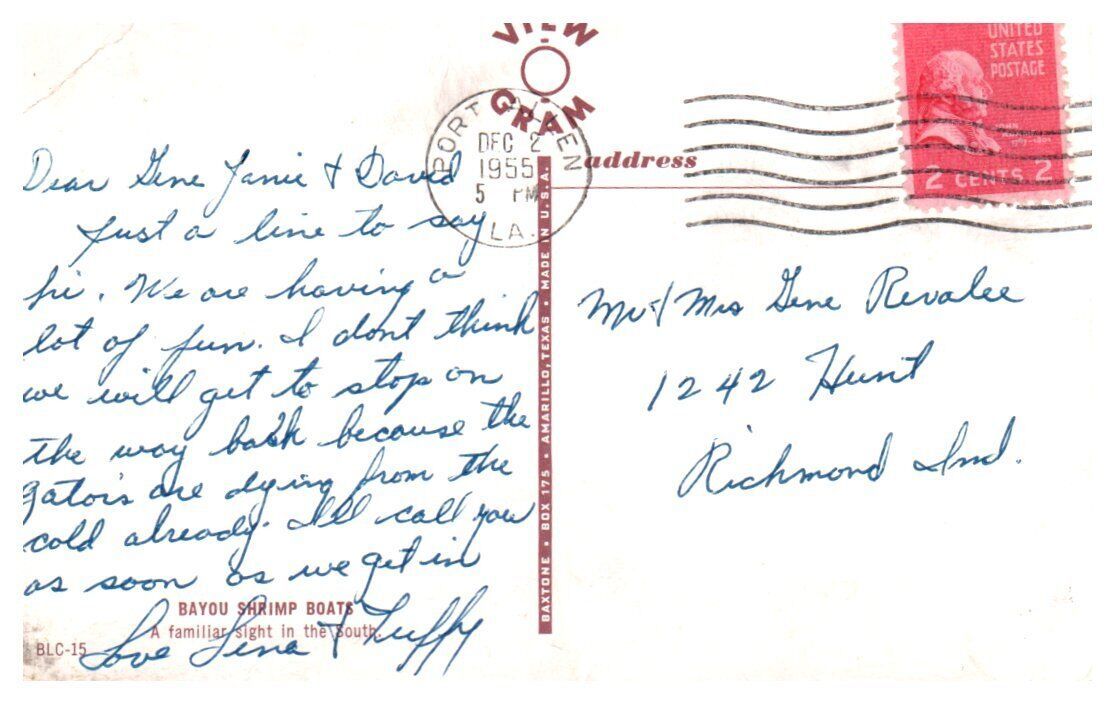 VIEW
GRAM
PORT ALLEN
DEC 2
1955
5 PM
LA.
UNITED
STATES
POSTAGE
JOHN
2 CENTS 2
address
Dear Gene Janie & David
Just a line to say
hi. We are having a
lot of fun. I dont think
we will get to stop on
the way back because the
gators are dying from the
cold already. I'll call you
as soon as we get in
Love Lena & Tuffy
Mr & Mrs Gene Revalee
1242 Hunt
Richmond Ind.
BAXTONE • BOX 175 • AMARILLO, TEXAS • MADE IN U.S.A.
BAYOU SHRIMP BOATS
A familiar sight in the South.
BLC-15